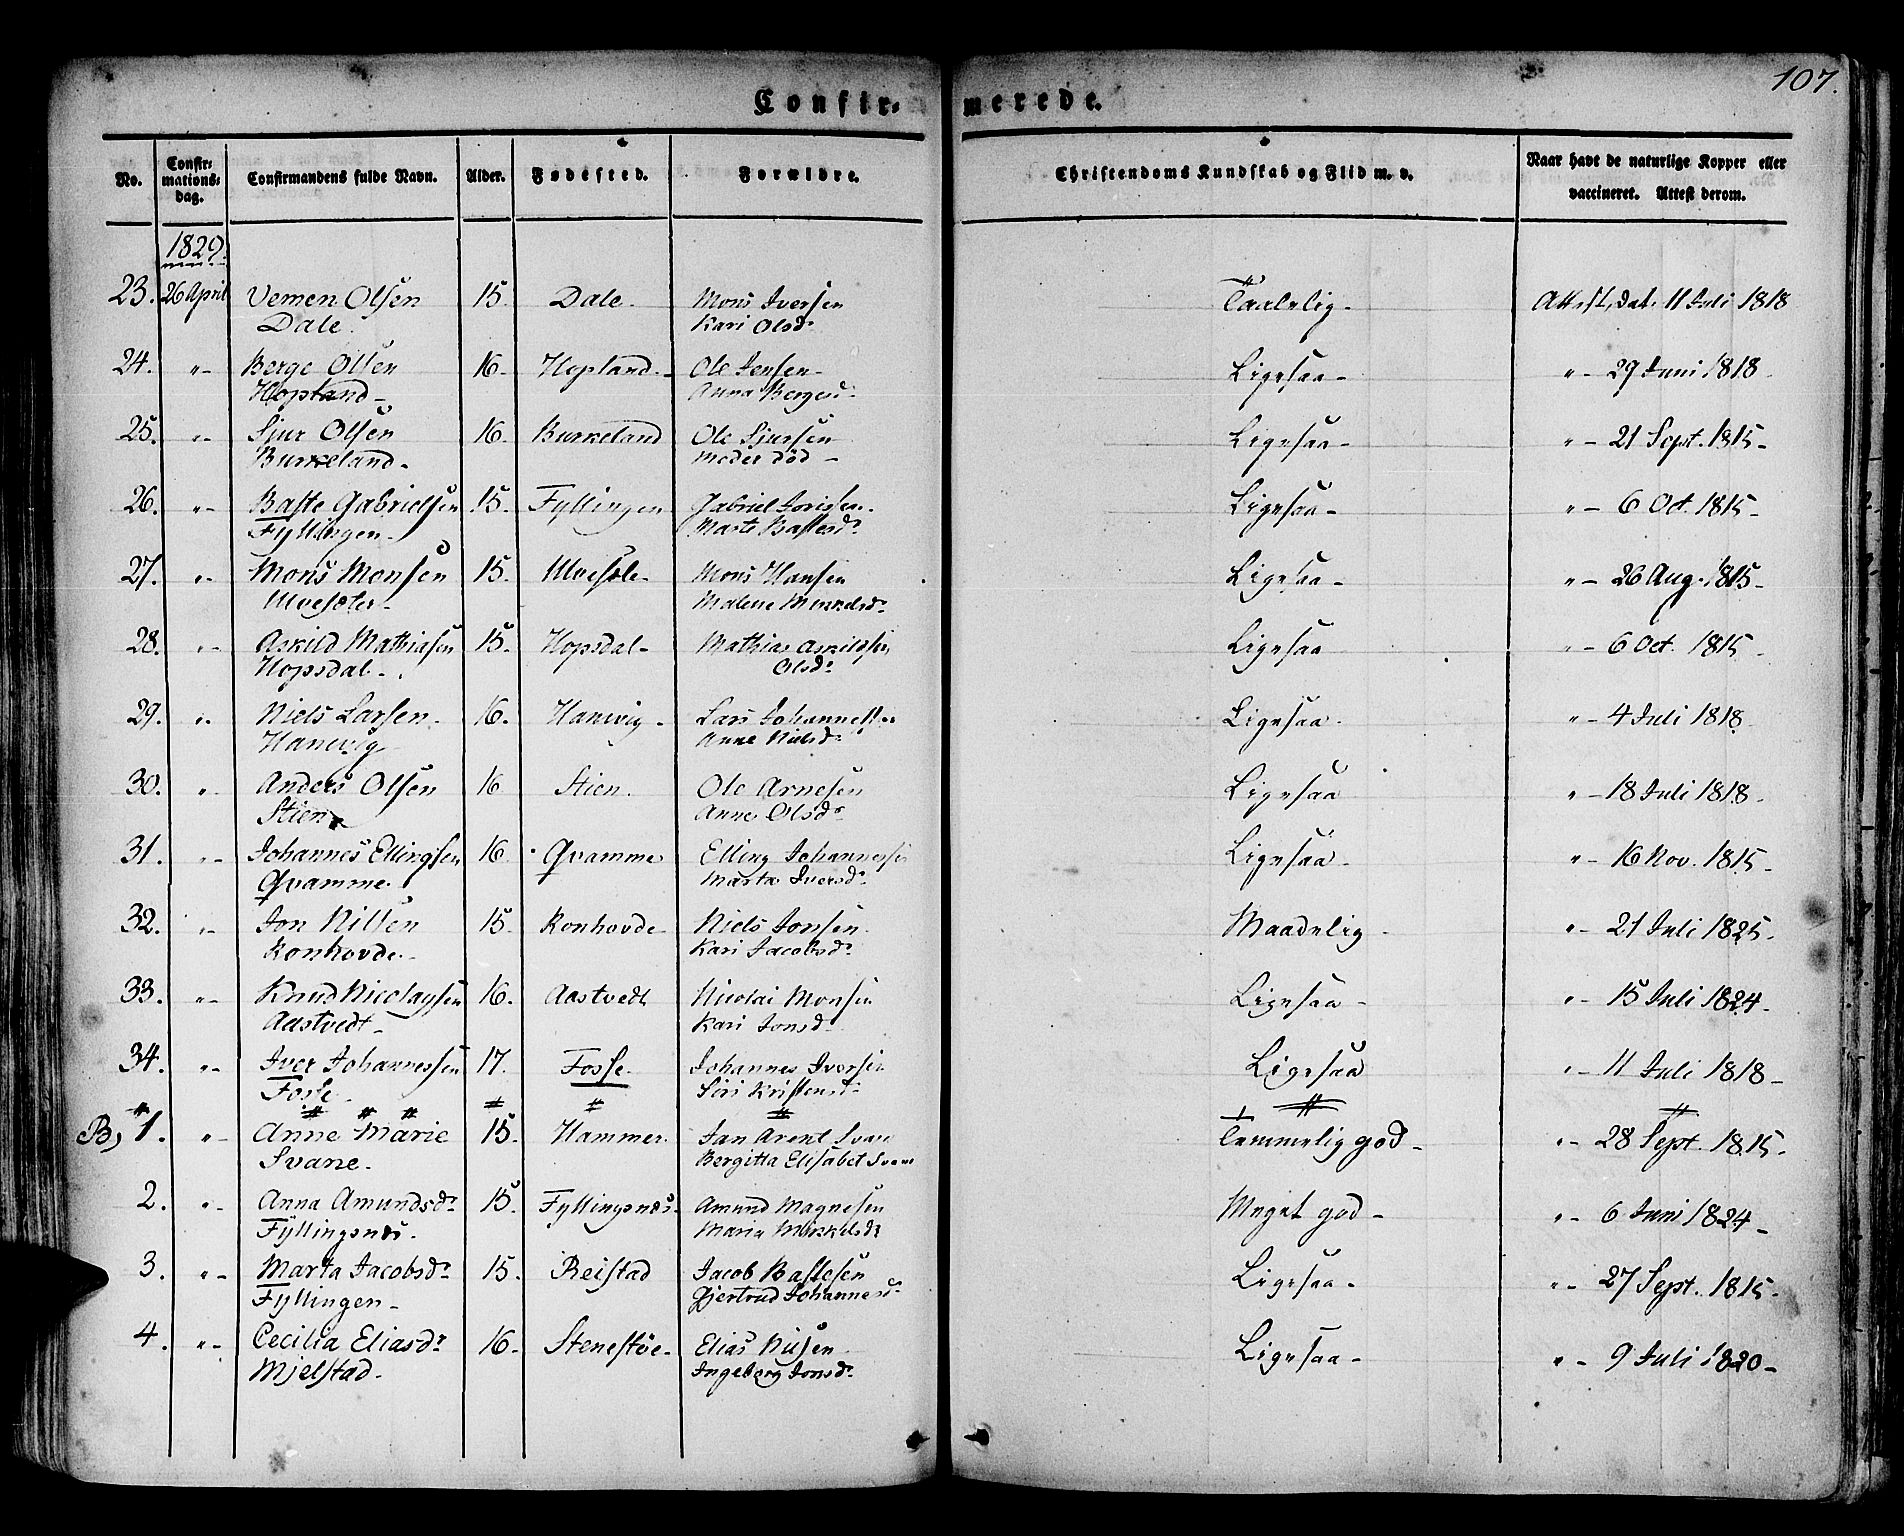 107.
Confirmerede.
No. Confirmationsdag. Confirmandens fulde Navn. Alder. Fødested. Forældre. Christendoms Kundskab og Flid m. v. Naar havt de naturlige Kopper eller vaccineret. Attest derom.
1829.
23. 26 April Vemen Olsen 15. Dale. Mons Iversen Taalelig - Attest, dat. 11 Juli 1818
Dale. Kari Olsdr
24. " - Berge Olsen 16. Hopland. - Ole Jensen - Ligesaa - " - 29 Juni 1818
Hopland - Anna Bergesd.
25. " - Sjur Olsen 16. Burkeland Ole Sjursen Ligesaa - " - 21 Sept. 1815 -
Burkeland - Moder död -
26. " - Baste Gabrielsen 15. Fyllingen Gabriel Jorisen. Ligesaa - " - 6 Oct. 1815 -
Fyllingen - Marte Bastesdr
27. " - Mons Monsen 15. Ulvesæte - Mons Hansen Ligesaa - " - 26 Aug. 1815 -
Ulvesæter - Malene Mikkelsdr
28. " - Askild Mathiasen 15. Hopsdal - Mathias Askildsen Ligesaa " - 6 Oct. 1815 -
Hopsdal - Olsdr
29. " Niels Larsen. 16. Hanevig - Lars Johannessen Ligesaa - " - 4 Juli 1818
Hanevig Anne Nielsdr
30. " Anders Olsen 16 Stien. Ole Arnesen Ligesaa " - 18 Juli 1818.
Stien Anne Olsdr
31. " - Johannes Ellingsen 16. Qvamme Elling Johannessen Ligesaa - " - 16 Nov. 1815 -
Qvamme. Marta Iversdr
32. " - Jon Nilsen 15. Ronhovde - Niels Jonsen Maadelig - " - 21 Juli 1825.
Ronhovde. - Kari Jacobsdr
33. " - Knud Nicolaysen 16. Aastvedt Nicolai Monsen Ligesaa - " - 15 Juli 1824.
Aastvedt - Kari Jonsd.
34. " - Iver Johannessen 17. Fosse. Johannes Iversen Ligesaa " - 11 Juli 1818 -
Fosse - Siri Kristensd.
B, 1. " - Anne Marie 15. Hammer. Jan Arent Svane Temmelig god - " - 28 Sept. 1815 -
Svane. Bergitta Elisabet Svane
2. " - Anna Amundsdr 15. Fyllingsnæs. Amund Magnesen Meget god - " - 6 Juni 1824 -
Fyllingsnæs. Maria Mikkelsdr
3. " - Marta Jacobsdr 15. Reistad Jacob Bastesen Ligesaa - " - 27 Sept. 1815 -
Fyllingen - Gjertrud Johannesd.
4. " - Cecilia Eliasdr 16. Stenestöe - Elias Nilsen Ligesaa - " - 9 Juli 1820 -
Mjelstad. Ingeborg Jonsdr